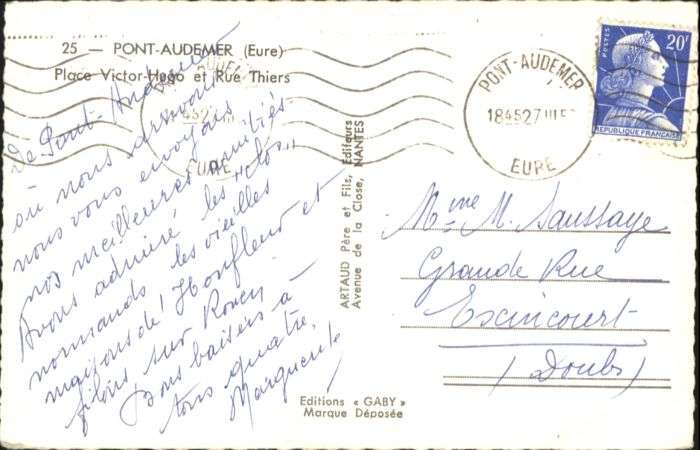 25 — PONT-AUDEMER (Eure)
Place Victor-Hugo et Rue Thiers
De Pont-Audemer
où nous arrivons
nous vous envoyons
nos meilleures amitiés.
Avons admiré, les "clos"
normands les vieilles
maisons de Honfleur et
filons sur Rouen.
Bons baisers à
tous quatre.
Marguerite
ARTAUD Père et Fils, Editeurs
Avenue de la Close, NANTES
Editions « GABY »
Marque Déposée
PONT-AUDEMER
EURE
PONT-AUDEMER
1845 27 III
EURE
POSTES
20F
REPUBLIQUE FRANÇAISE
Mme M. Saussaye
Grande Rue
Exincourt
(Doubs)